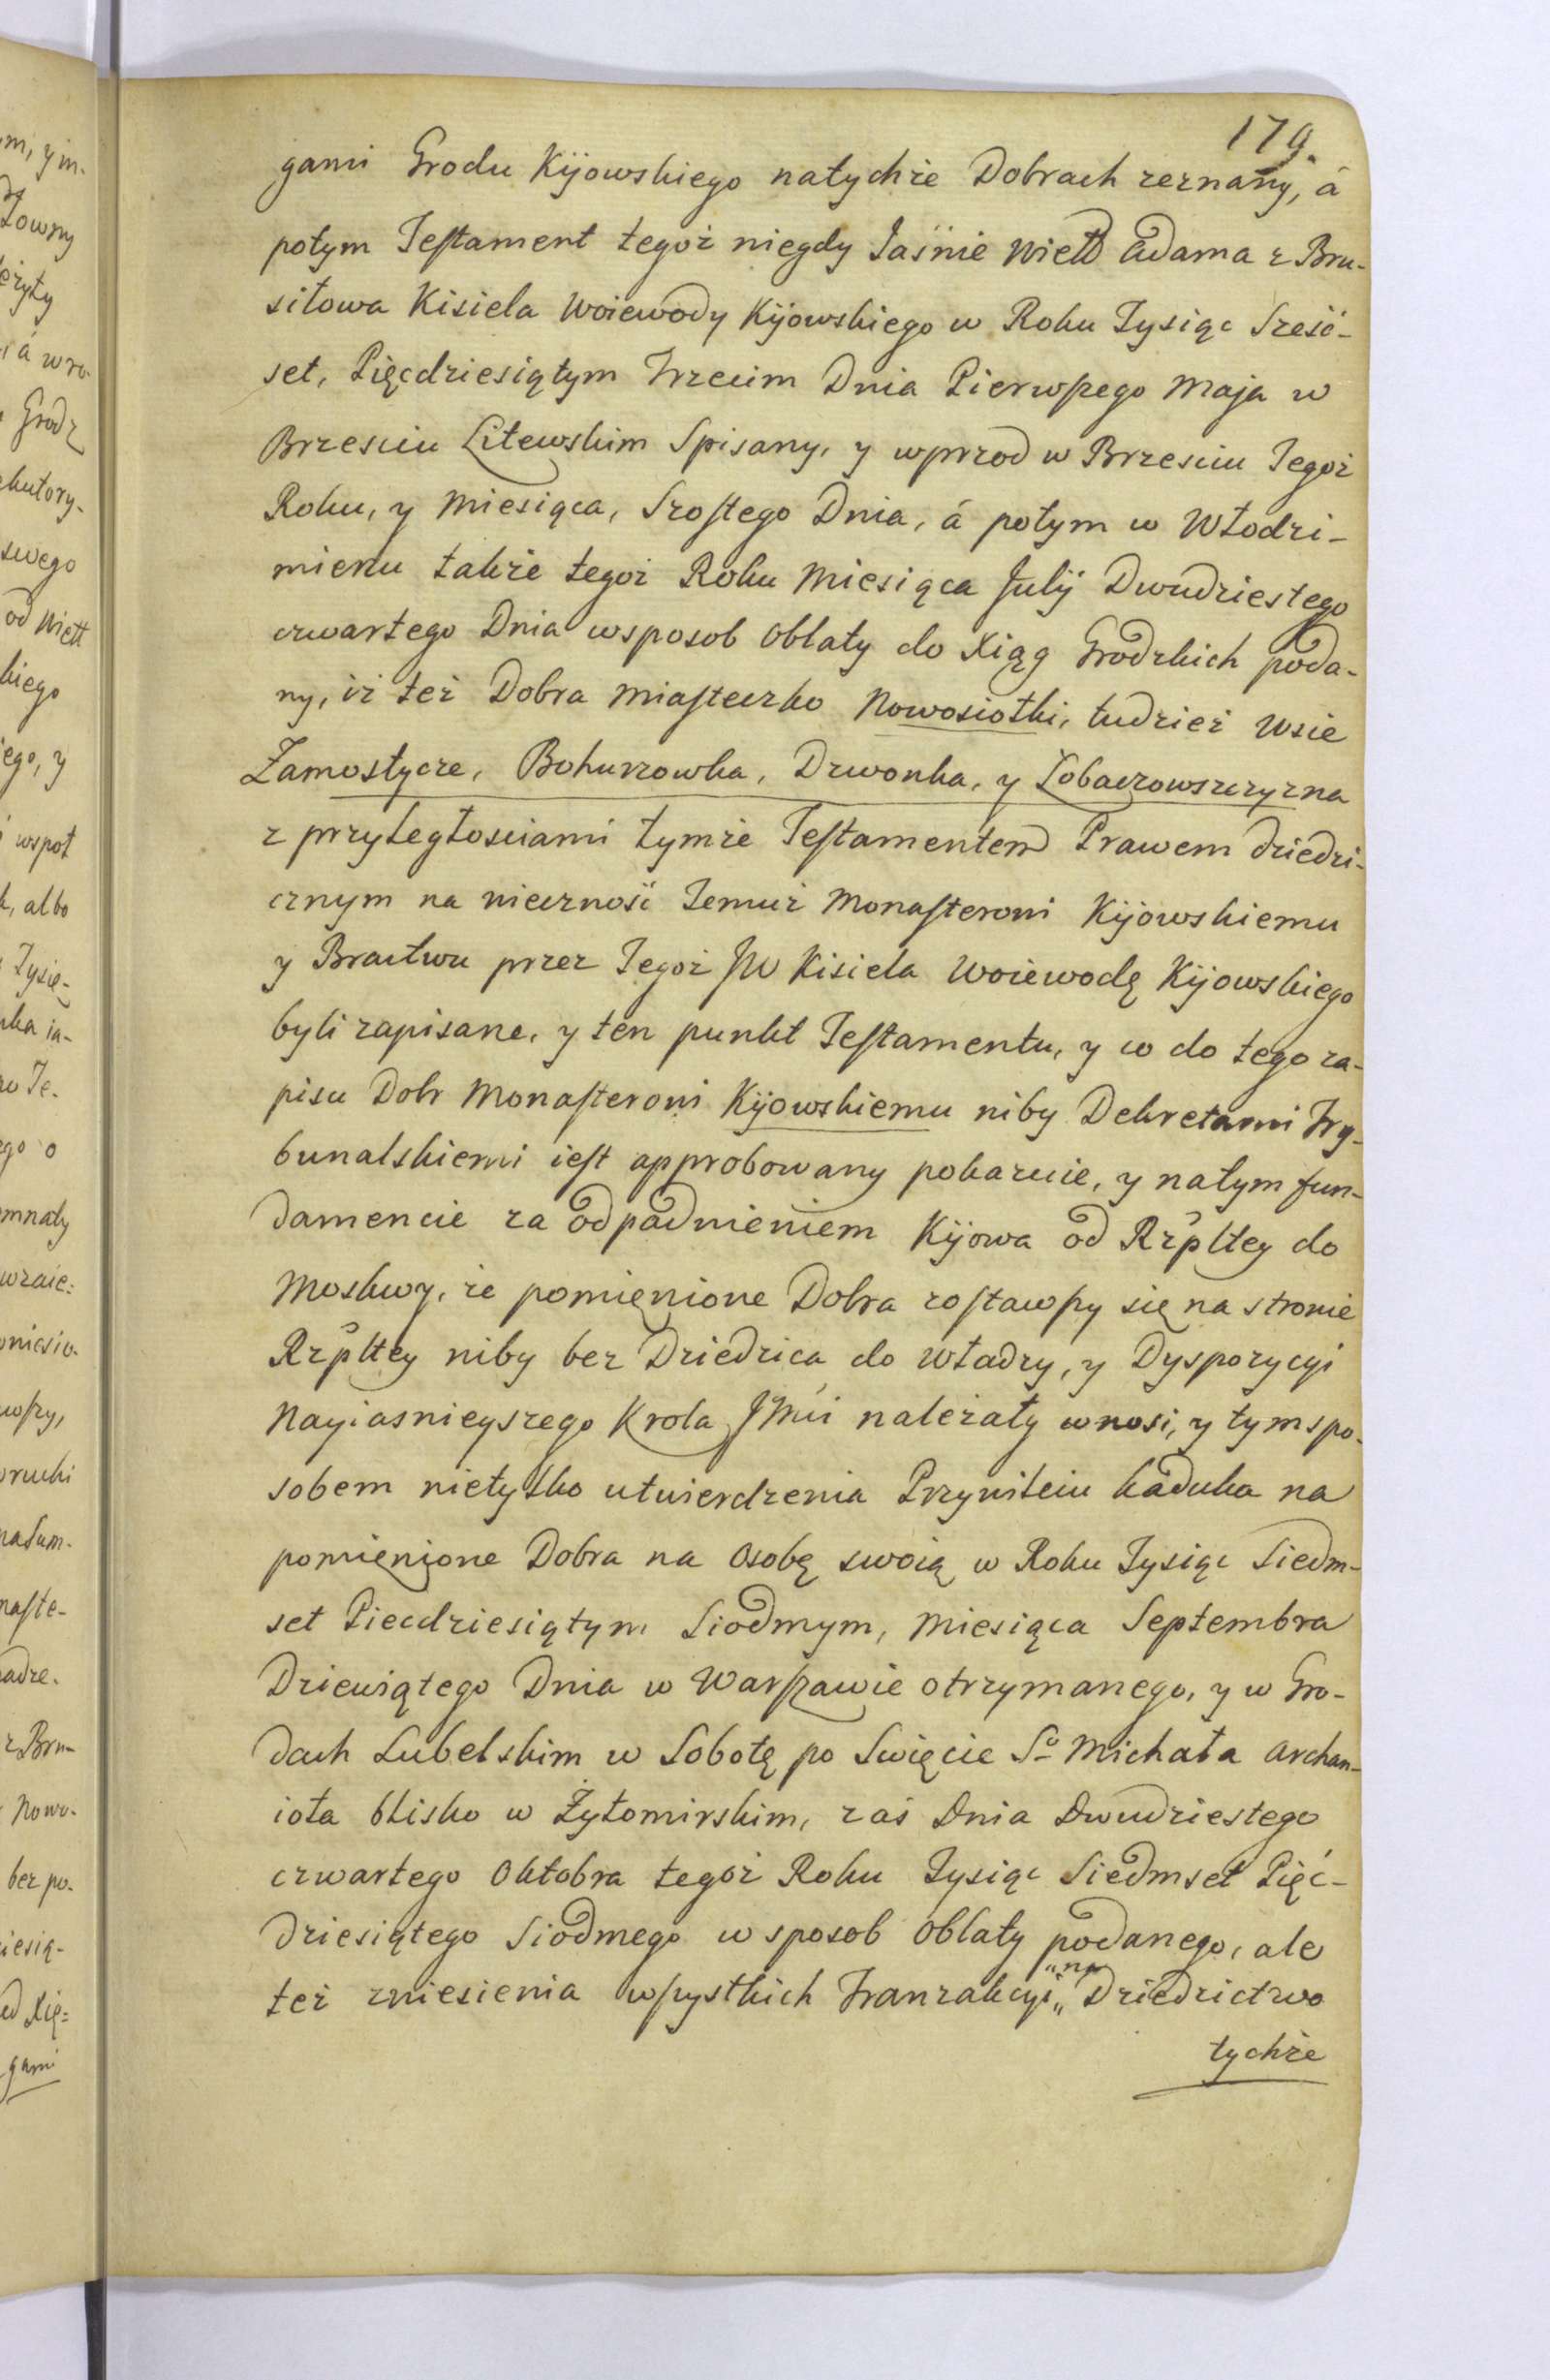 179.
gami Grodu Kijowskiego natychże Dobrach zeznany, á
potym Testament tegoż niegdy Jaśnie Wiel͠ Adama z Bru-
siłowa Kisiela Woiewody Kijowskiego w Roku Tysiąc Sześć-
set, Pięcdziesiątym Trzecim Dnia Pierwszego Maja w
Brzesciu Litewskim Spisany, y wprzod w Brzesciu Tegoż
Roku, y Miesiąca, Szostego Dnia, á potym w Włodzi-
mierzu także tegoż Roku Miesiąca Julij Dwudziestego
czwartego Dnia wsposob Oblaty do Xiąg Grodzkich poda-
ny, iż też Dobra Miasteczko Nowosiołki, tudzież Wsie
Zamostycze, Bohurzowka, Dzwonka, y Łobaczowszczyzna
z przyległosciami tymże Testamentem Prawem dziedzi-
cznym na wieczność Temuż Monasterowi Kijowskiemu
y Bractwu przez Tegoż JW Kisiela Woiewodę Kijowskiego
byli zapisane, y ten punkt Testamentu, y co do tego za-
pisu Dobr Monasterowi Kijowskiemu niby Dekretami Try-
bunalskiemi iest approbowany pokazuie, y natym fun-
damencie za odpadnieniem Kijowa od Rzpltey do
Moskwy, że pomienione Dobra zostawszy się na stronie
Rzpltey niby bez Dziedzica do władzy, y Dyspozycyi
Nayiasnieyszego Krola JMći należały wnosi, y tym spo-
sobem nietylko utwierdzenia Przywileiu kaduka na
pomienione Dobra na Osobę swoią w Roku Tysiąc Siedm-
set Piecdziesiątym Siodmym, Miesiąca Septembra
Dziewiątego Dnia w Warszawie otrzymanego, y w Gro-
dach Lubelskim w Sobotę po Swięcie Sº Michała Archan-
ioła blisko w Żytomirskim, zaś Dnia Dwudziestego
czwartego Oktobra tegoż Roku Tysiąc Siedmset Pięć-
dziesiątego Siodmego w sposob Oblaty podanego, ale
też zniesienia wszystkich Tranzakcyi „na„ Dziedzictwo
tychże